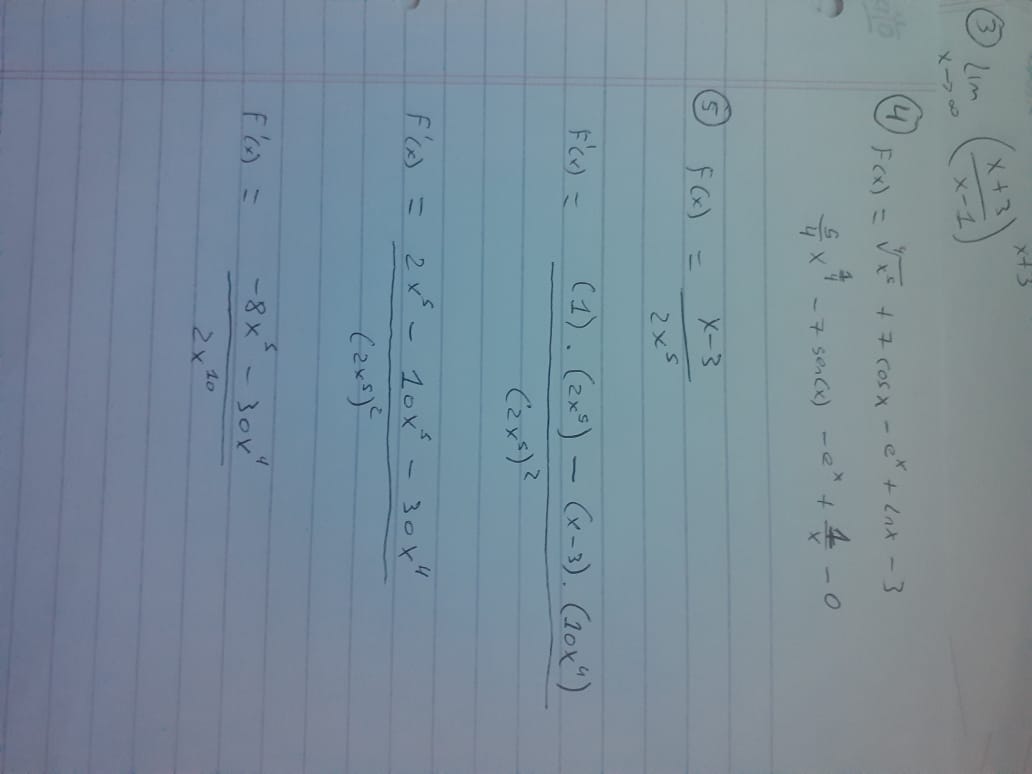 ③ lim x→∞ ((x+3)/(x-1))^(x+3)
④ F(x) = ∜(x⁵) + 7 cosx - eˣ + lnx - 3
5/4 x^(1/4) - 7 sen(x) - eˣ + 1/x - 0
⑤ F(x) = (x-3)/(2x⁵)
F'(x) = ((1) · (2x⁵) - (x-3) · (10x⁴))/(2x⁵)²
F'(x) = (2x⁵ - 10x⁵ - 30x⁴)/(2x⁵)²
F'(x) = (-8x⁵ - 30x⁴)/(2x¹⁰)